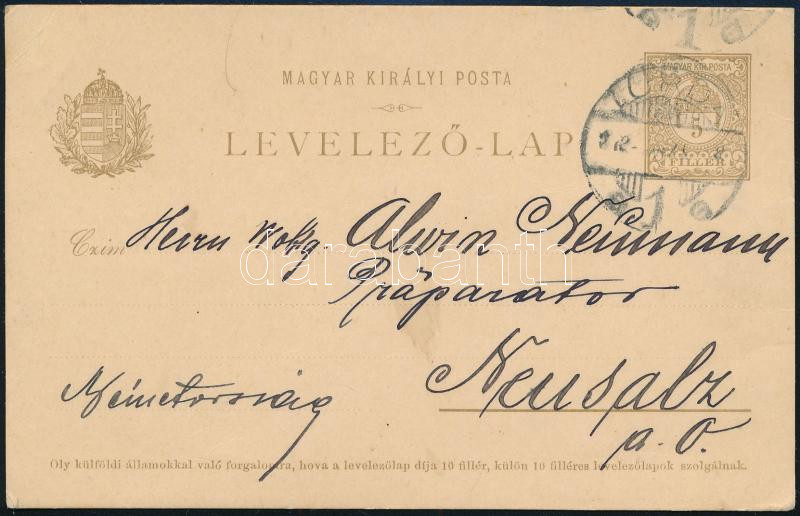 MAGYAR KIR. POSTA
5
FILLÉR
MAGYAR KIRÁLYI POSTA
LEVELEZŐ-LAP
1
1
Czim
Herrn Alwin Neumann
Präparator
Németország
Neusalz
a. O.
Oly külföldi államokkal való forgalomra, hova a levelezőlap díja 10 fillér, külön 10 filléres levelezőlapok szolgálnak.
darabanth